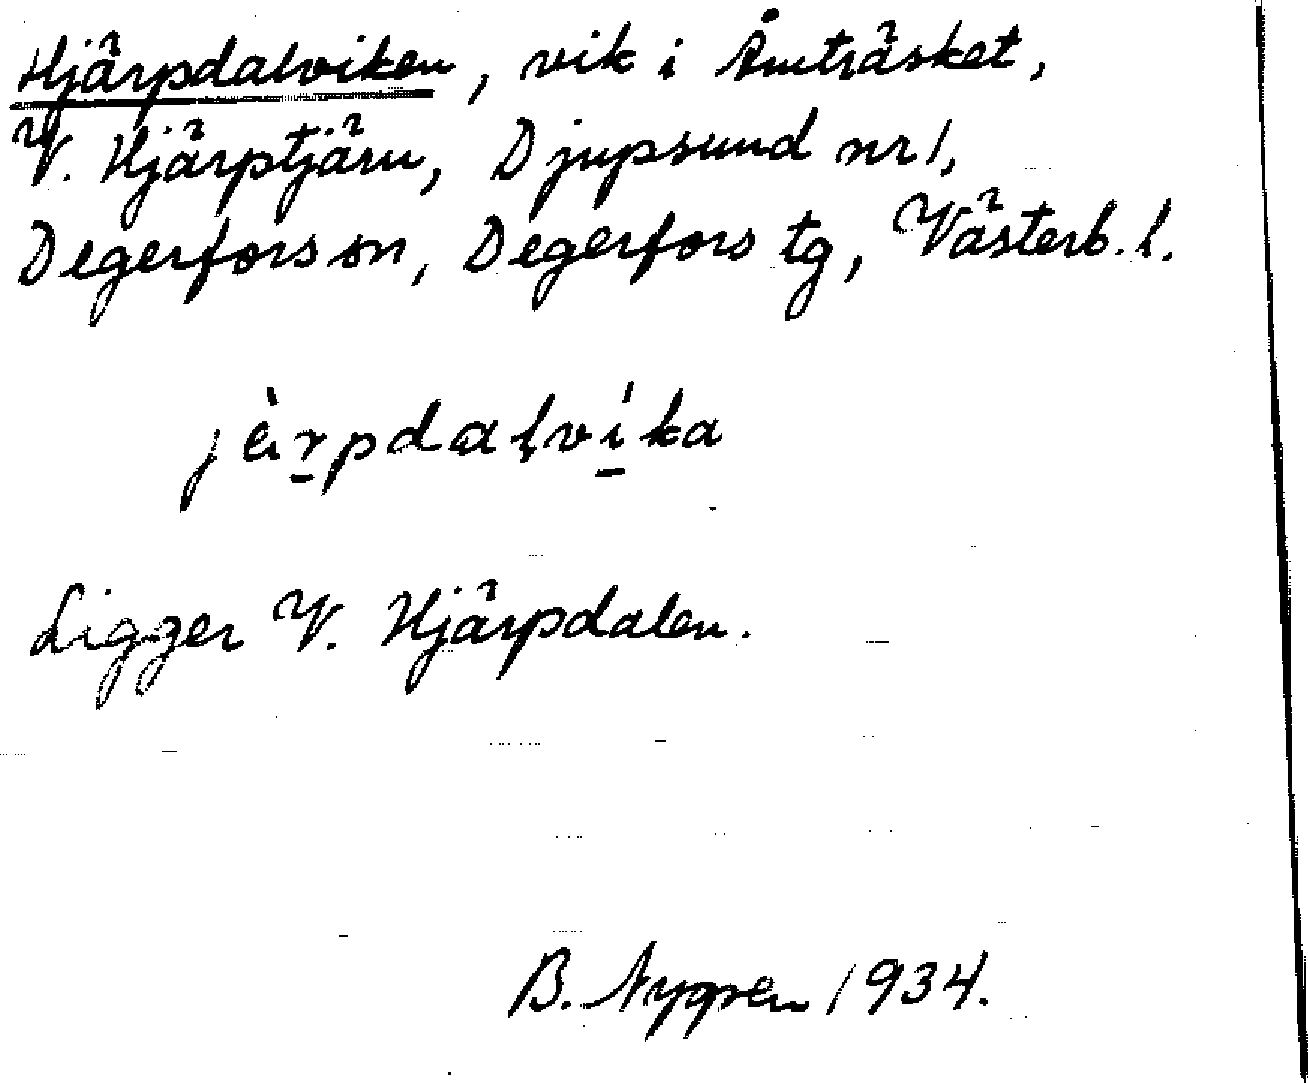 Hjärpdalviken, vik i Åmträsket,
V. Hjärptjärn, Djupsund nr 1,
Degerfors sn, Degerfors tg, Västerb. l.
jä̀r̲pdalví̲ka
Ligger V. Hjärpdalen.
B. Nygren 1934.